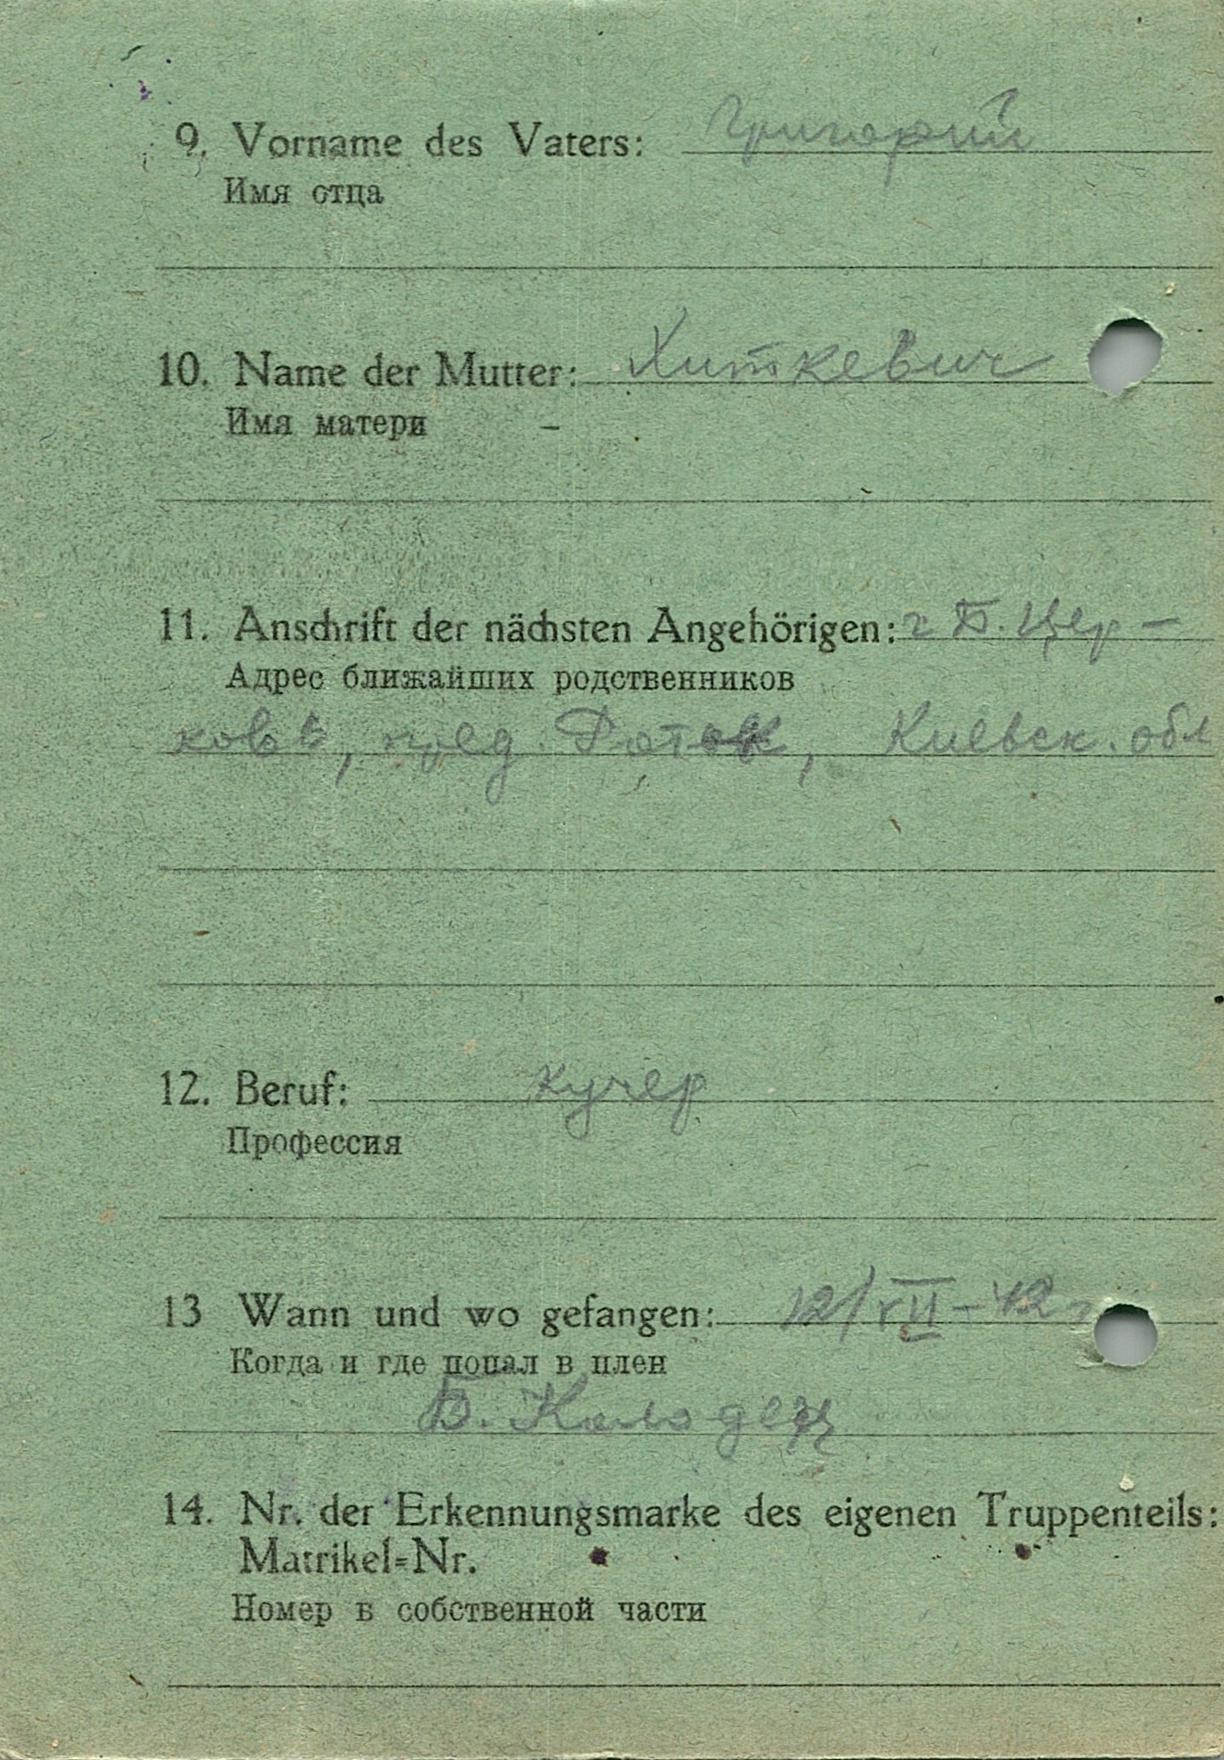 9. Vorname des Vaters: Григорий
Имя отца
10. Name der Mutter: Хиткевич
Имя матери
11. Anschrift der nächsten Angehörigen: г Б. Цер-
Адрес ближайших родственников
ковь, пред. Роток, Киевск. обл
12. Beruf: кучер
Профессия
13 Wann und wo gefangen: 12/VII-42г
Когда и где попал в плен
Б. Колодец
14. Nr. der Erkennungsmarke des eigenen Truppenteils:
Matrikel=Nr.
Номер в собственной части